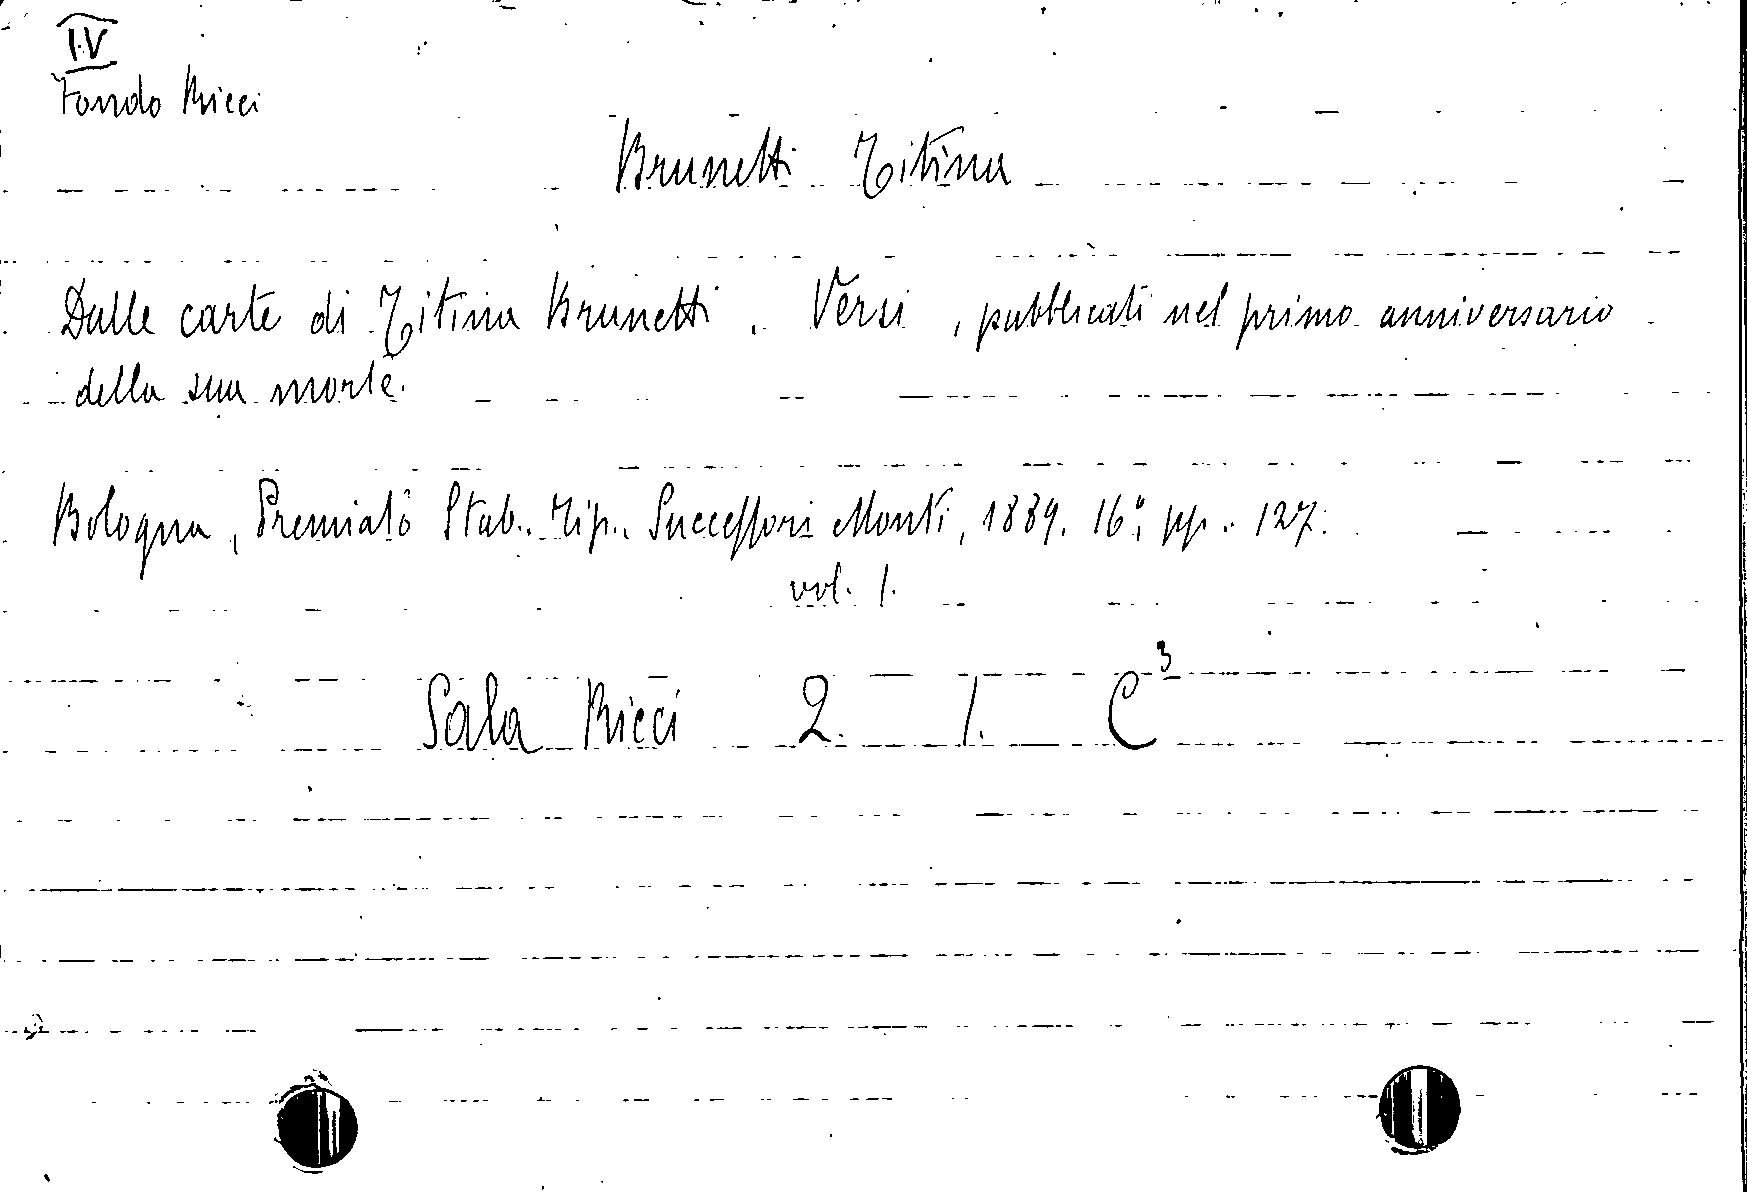 IV
Fondo Ricci
Brunetti Titina
Dalle carte di Titina Brunetti. Versi, pubblicati nel primo anniversario
della sua morte.
Bologna, Premiato Stab. Tip. Successori Monti, 1889. 16°, pp. 127.
vol. 1.
Sala Ricci 2. 1. C³